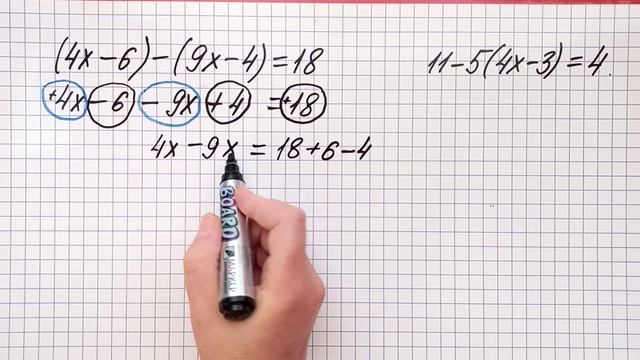 (4x-6)-(9x-4)=18
+4x-6 -9x+4 =+18
4x-9x=18+6-4
11-5(4x-3)=4.
BOARD
МАРКЕР